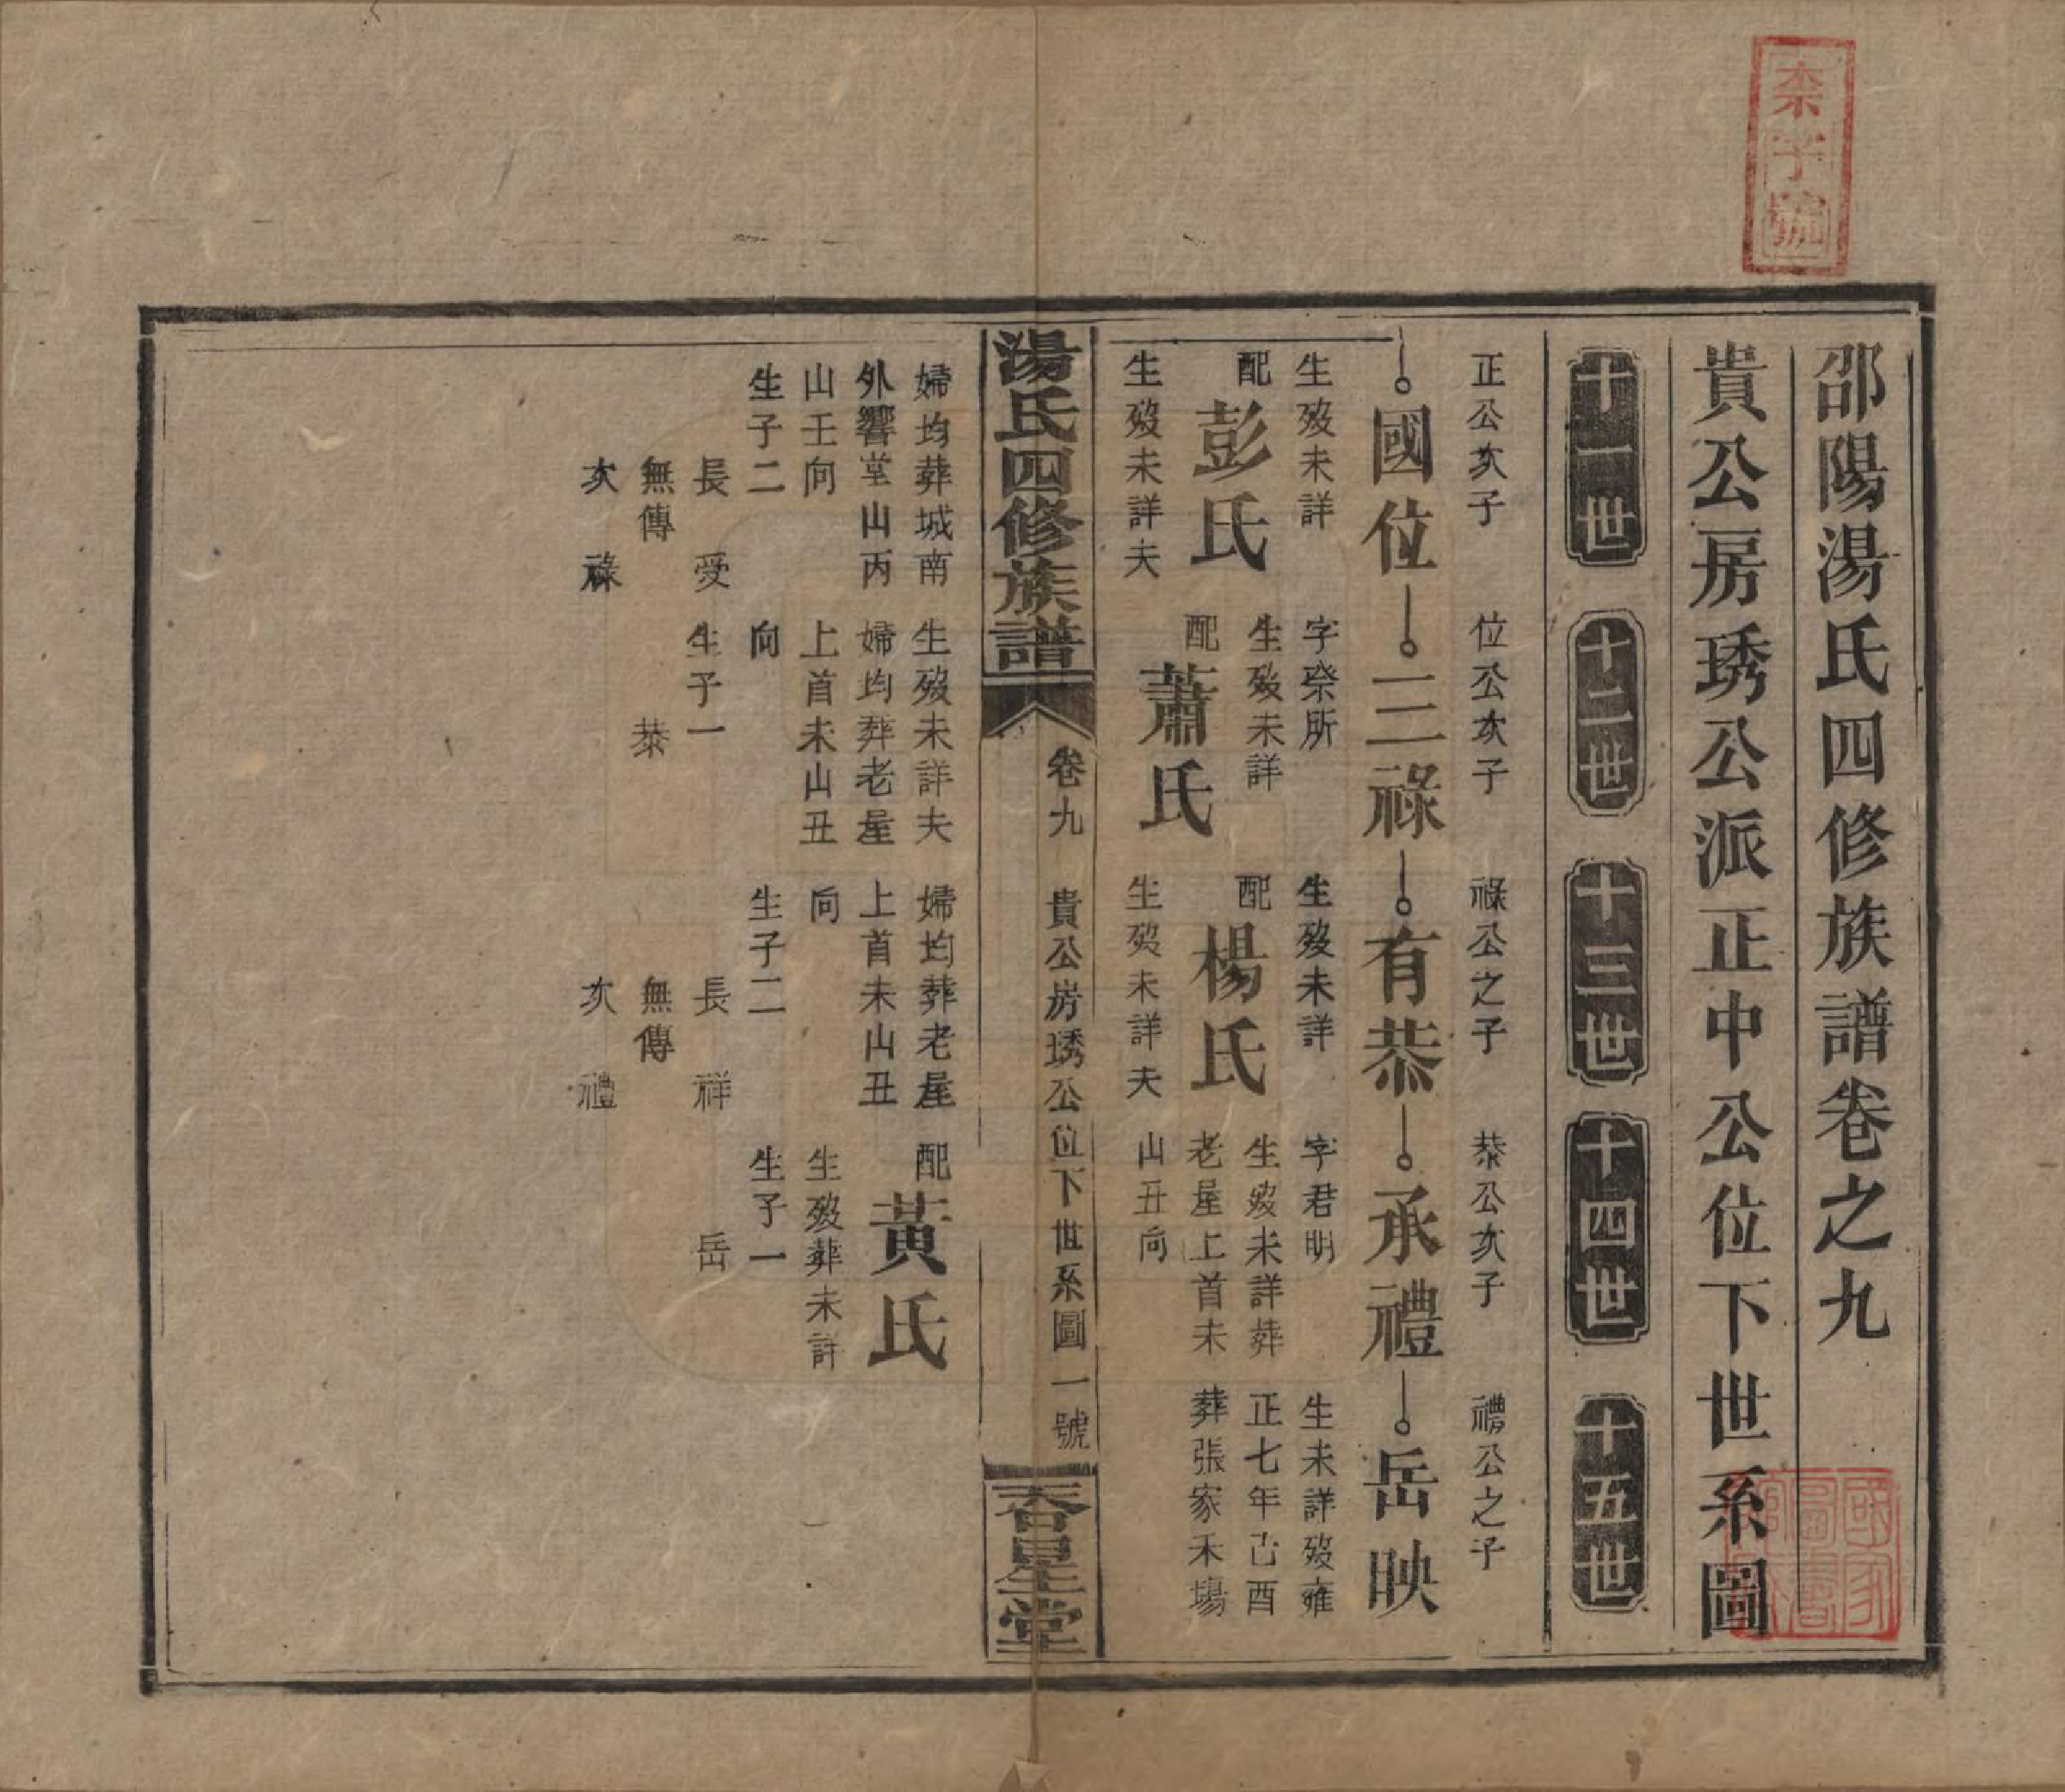 柰字號
邵陽湯氏四修族譜卷之九
貴公房琇公派正中公位下世系圖
十一世
十二世
十三世
十四世
十五世
正公次子
國位
生歿未詳
配彭氏
生歿未詳夫
婦均葬城南
外響堂山丙
山壬向
生子二
長受
無傳
次祿
位公次子
三祿
字榮所
生歿未詳
配蕭氏
生歿未詳夫
婦均葬老屋
上首未山丑
向
生子一
恭
祿公之子
有恭
生歿未詳
配楊氏
生歿未詳夫
婦均葬老屋
上首未山丑
向
生子二
長祥
無傳
次禮
恭公次子
承禮
字君明
生歿未詳葬
老屋上首未
山丑向
配黃氏
生歿葬未詳
生子一
岳
禮公之子
岳映
生未詳歿雍
正七年己酉
葬張家禾場
湯氏四修族譜
卷九
貴公房琇公位下世系圖
一號
吞星堂